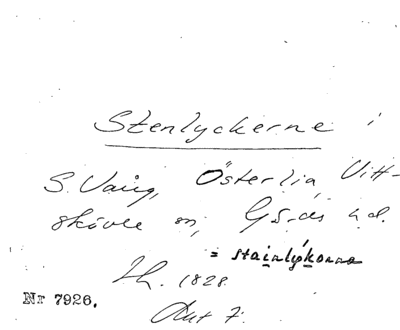 Stenlyckerne i
S. Vång, Österlia, Vitt-
skövle sn, Gärds hd.
= stainlykorna
Th. 1828.
Nr 7926.
Akt 7.